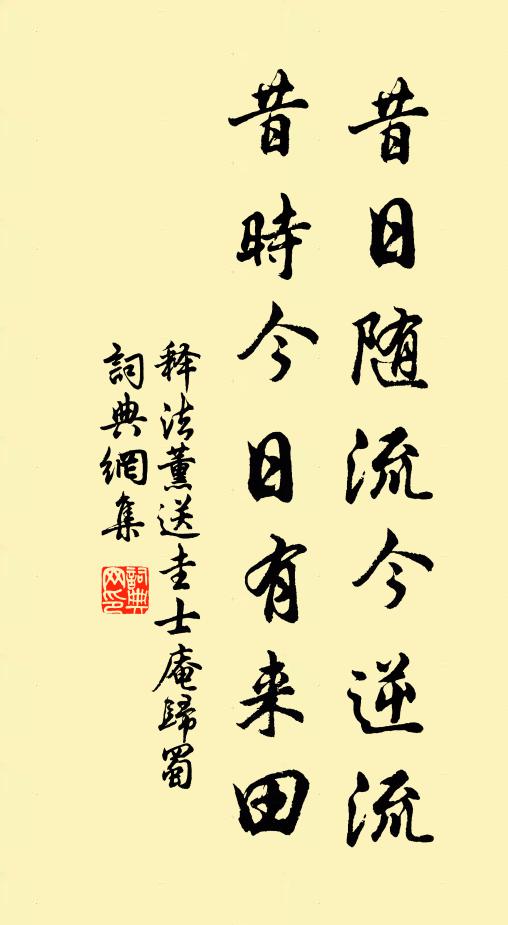 昔日随流今逆流
昔時今日有来田
释法薰送圭士庵歸蜀
詞典網集
詞典網印